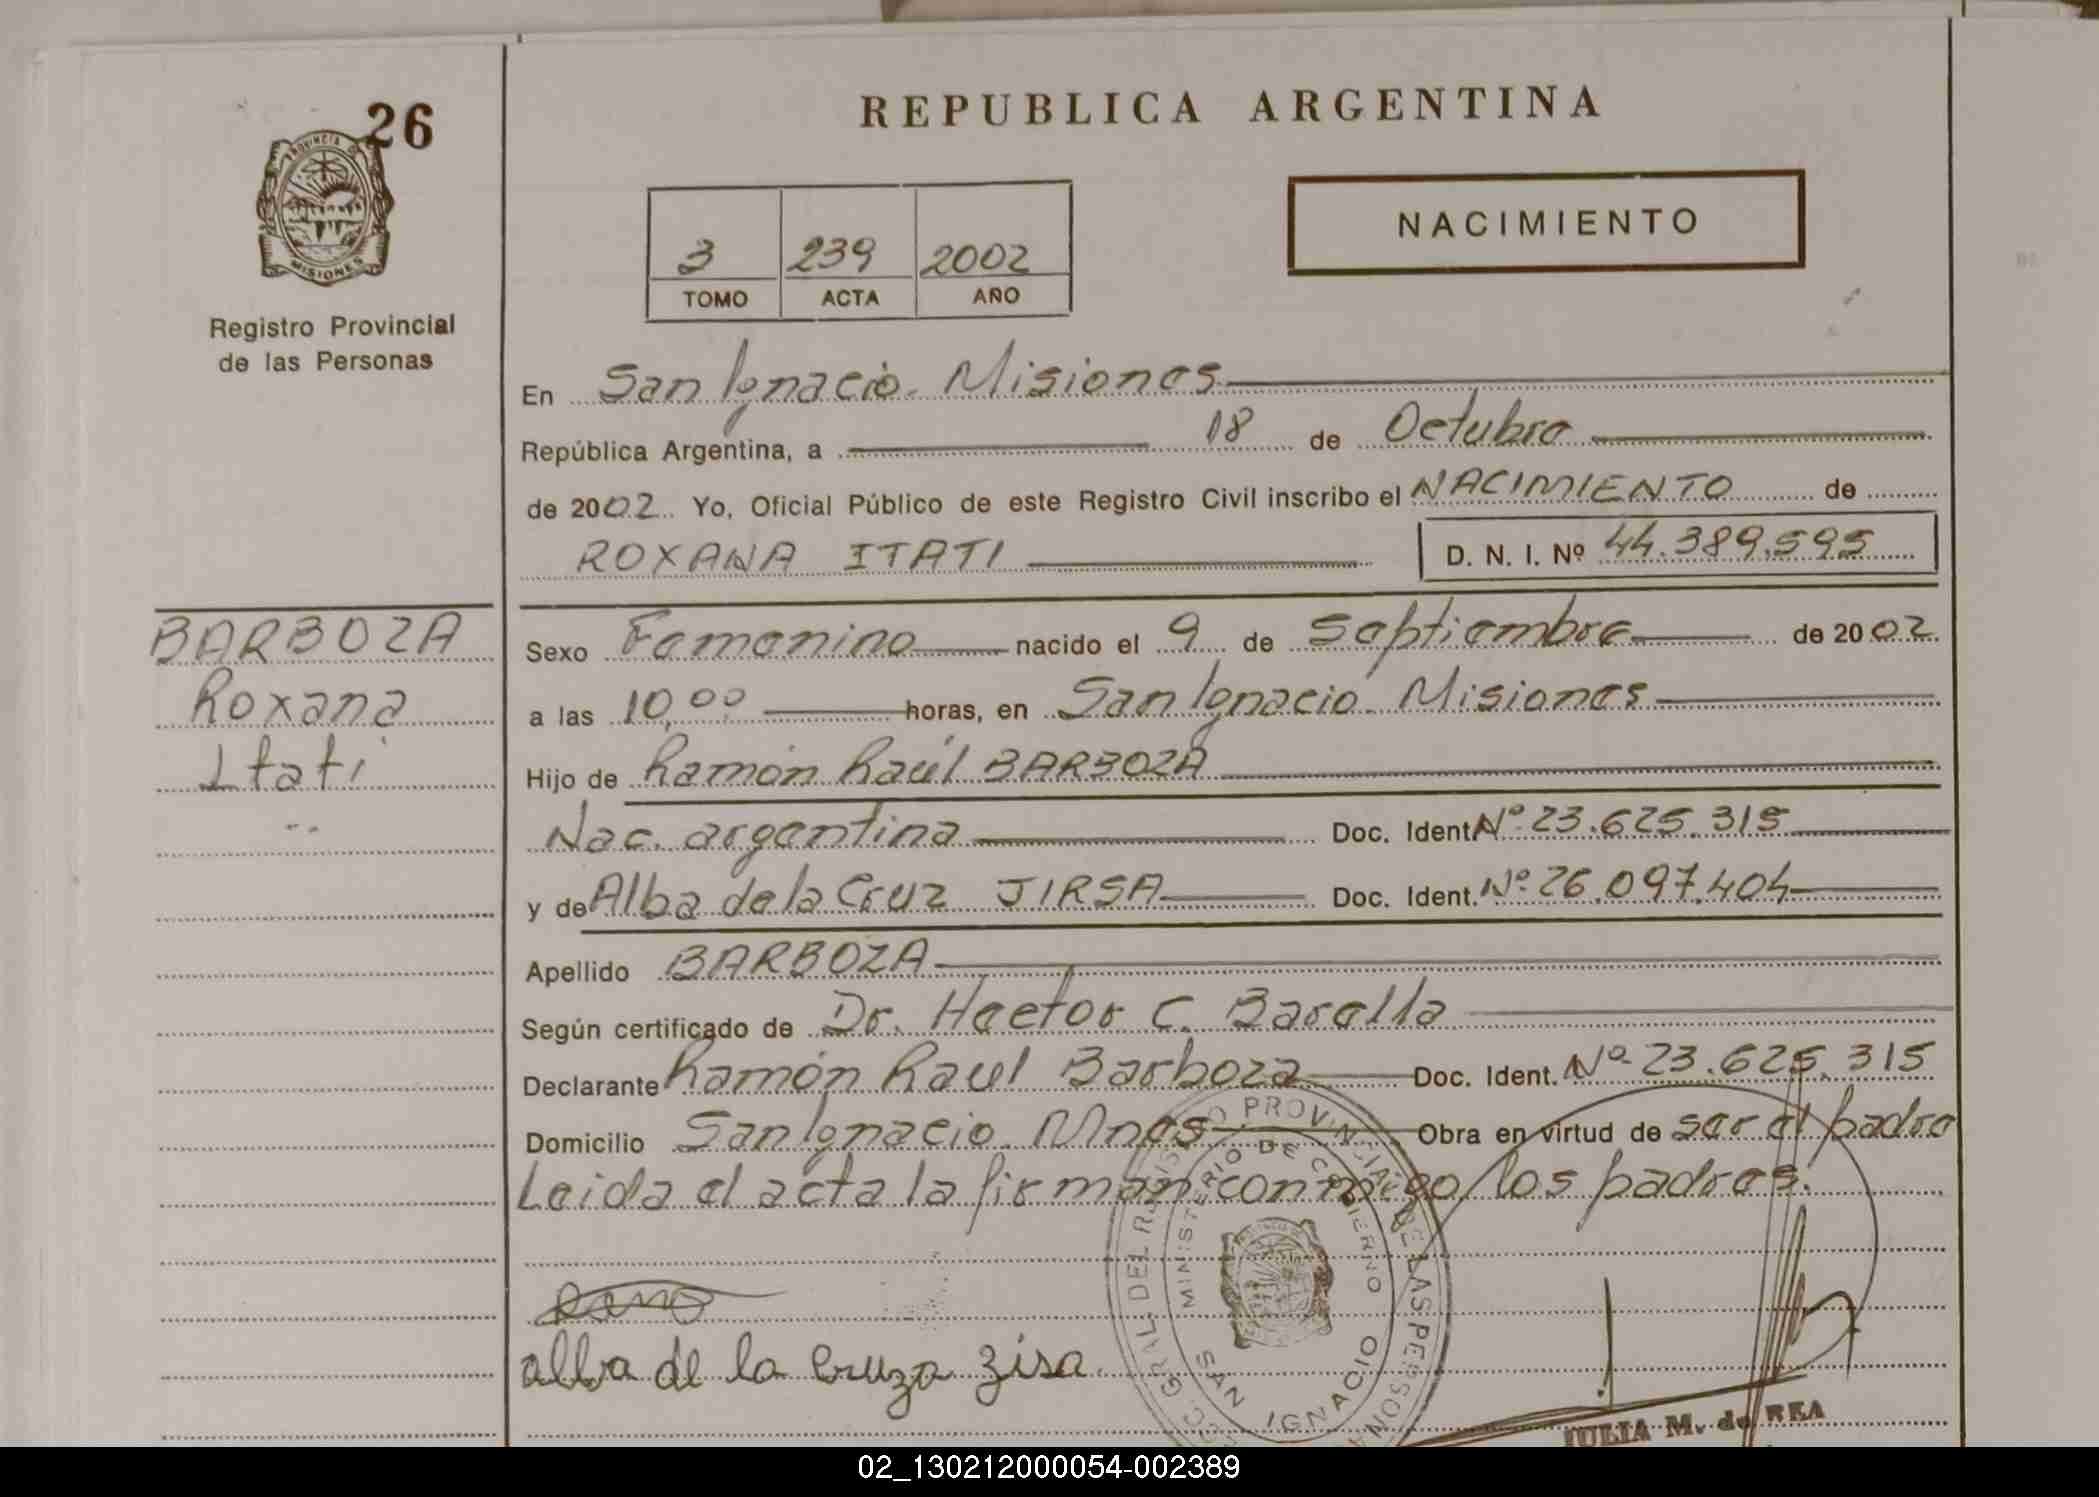 26
PROVINCIA DE
MISIONES
Registro Provincial
de las Personas
REPUBLICA ARGENTINA
3 239 2002
TOMO ACTA AÑO
NACIMIENTO
En San Ignacio. Misiones
República Argentina, a 18 de Octubre
de 2002 Yo, Oficial Público de este Registro Civil inscribo el NACIMIENTO de
ROXANA ITATI D. N. I. Nº 44.389.595
BARBOZA
Roxana
Itatí
Sexo Femenino nacido el 9 de Septiembre de 2002.
a las 10,00 horas, en San Ignacio. Misiones
Hijo de Ramón Raúl BARBOZA
Nac. argentina Doc. Ident. Nº 23.625.315
y de Alba de la Cruz JIRSA Doc. Ident. Nº 26.097.404
Apellido BARBOZA
Según certificado de Dr. Hector C. Barella
Declarante Ramón Raul Barboza Doc. Ident. Nº 23.625.315
Domicilio San Ignacio. Mnes Obra en virtud de ser el padre
Leida el acta la firman conmigo los padres.
alba de la Cruza Zisa.
MINISTERIO DE GOBIERNO
SAN IGNACIO
JULIA M. de REA
02_130212000054-002389